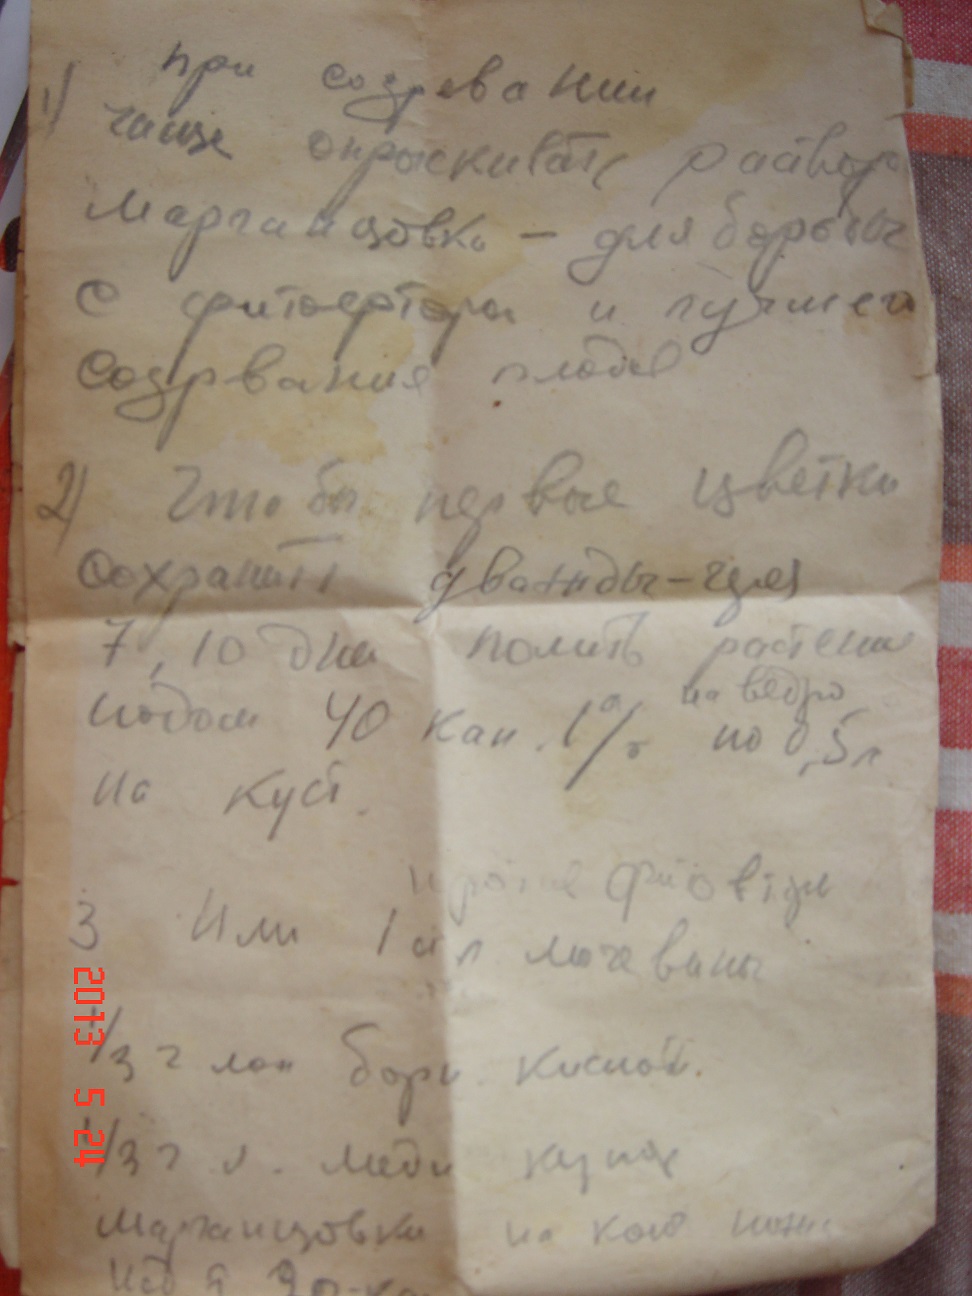 при созревании
1) чаще опрыскивать раствор
марганцовки - для борьбы
с фитофторы и лучшего
созрвания плодов
2) Чтобы первые цветки
сохранить дважды - через
7, 10 дней полить растения
на ведро
иодом 40 кап. 1% по 0,5 л
на куст.
против
3 Или 1 ст л мочевины
1/3 ч лож борн. кислой.
1/3 ч л. меди купор
марганцовки на кон ножа
2013 5 24